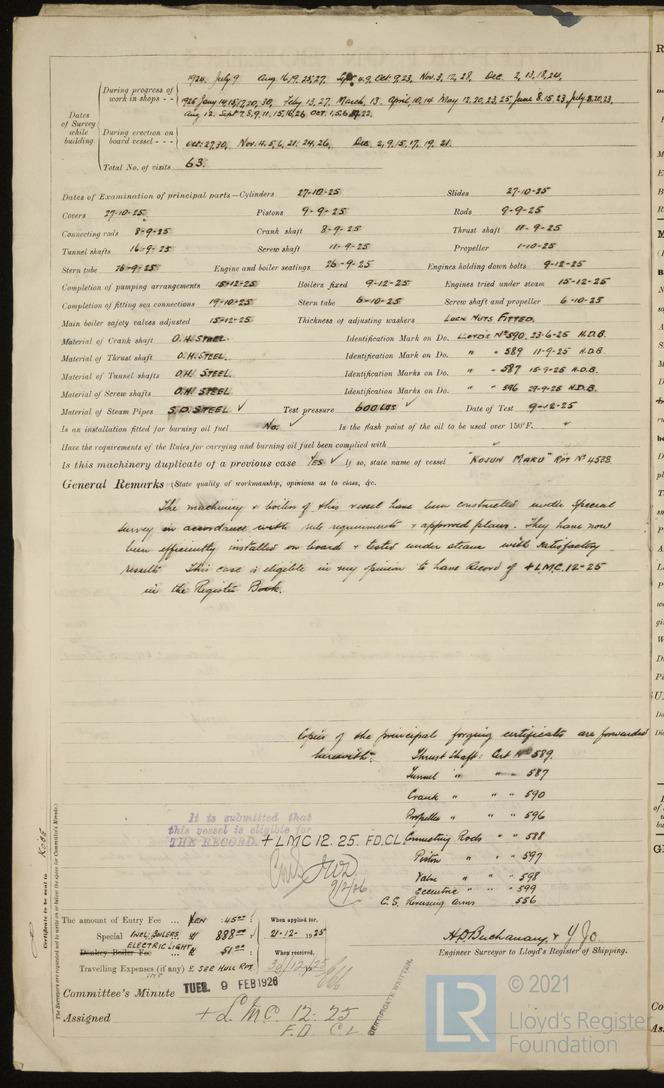 1924. July 9 Aug 16, 19, 25, 27, Sept 4, 9, Oct. 9, 23, Nov. 3, 12, 28, Dec. 2, 13, 18, 24,
During progress of work in shops - -
1925 Jany 14, 15, 17, 20, 30, Feby 13, 27. March, 13. April, 10, 14 May 12. 20, 23, 25 June 8. 15. 23 July 8. 20, 23,
Aug 12. Sept 7, 8, 9, 11, 15, 16, 26, Oct. 1, 5, 6, 19, 22.
Dates of Survey while building
During erection on board vessel - - -
Oct. 27, 30, Nov. 4. 5, 6, 21. 24, 26, Dec. 2, 9, 15, 17. 19. 21.
Total No. of visits 63.
Dates of Examination of principal parts—Cylinders 27-10-25 Slides 27-10-25
Covers 27-10-25 Pistons 9-9-25 Rods 9-9-25
Connecting rods 8-9-25 Crank shaft 8-9-25 Thrust shaft 11-9-25
Tunnel shafts 16-9-25 Screw shaft 11-9-25 Propeller 1-10-25
Stern tube 26-9-25 Engine and boiler seatings 26-9-25 Engines holding down bolts 9-12-25
Completion of pumping arrangements 15-12-25 Boilers fixed 9-12-25 Engines tried under steam 15-12-25
Completion of fitting sea connections 19-10-25 Stern tube 6-10-25 Screw shaft and propeller 6-10-25
Main boiler safety valves adjusted 15-12-25 Thickness of adjusting washers Lock Nuts Fitted.
Material of Crank shaft O.H. Steel. Identification Mark on Do. Lloyds No 590. 23-6-25 H.D.B.
Material of Thrust shaft O.H. Steel. Identification Mark on Do. " " 589 11-9-25 H.D.B.
Material of Tunnel shafts O.H. Steel Identification Marks on Do. " " 587 15-9-25 H.D.B.
Material of Screw shafts O.H. Steel Identification Marks on Do. " " 596 29-9-25 H.D.B.
Material of Steam Pipes S.D. Steel ✓ Test pressure 600 lbs ✓ Date of Test 9-12-25
Is an installation fitted for burning oil fuel No. ✓ Is the flash point of the oil to be used over 150°F. ✓
Have the requirements of the Rules for carrying and burning oil fuel been complied with ✓
Is this machinery duplicate of a previous case Yes ✓ If so, state name of vessel "Kosun Maru" Rpt No 4538
General Remarks (State quality of workmanship, opinions as to class, &c.
The machinery & boilers of this vessel have been constructed under Special
survey in accordance with rule requirements & approved plans. They have now
been efficiently installed on board & tested under steam with satisfactory
results. This case is eligible in my opinion to have Record of +L.M.C. 12-25
in the Register Book.
Copies of the principal forging certificates are forwarded
herewith: Thrust Shaft: Cert No 589.
Tunnel " " " 587
Crank " " " 590
Propeller " " " 596
Connecting Rods " " 588
Piston " " " 597
Valve " " " 598
Eccentric " " " 599
C.S. Reversing Arms 556
It is submitted that
this vessel is eligible for
THE RECORD. + LMC 12. 25. F.D. CL.
9/2/26
Certificate to be sent to Kobe
The amount of Entry Fee ... Yen : 45.00 : When applied for,
Special Incl. Boilers. " 888.00 : 21-12-1925
Donkey Boiler Fee Electric Light " 51.00 : When received,
Travelling Expenses (if any) £ See Hull Rpt.
H.D. Buchanan, & Y Jo
Engineer Surveyor to Lloyd's Register of Shipping.
Committee's Minute TUES. 9 FEB 1926
Assigned + L.M.C. 12. 25
F.D. CL
CERTIFICATE WRITTEN.
LR
© 2021
Lloyd's Register
Foundation